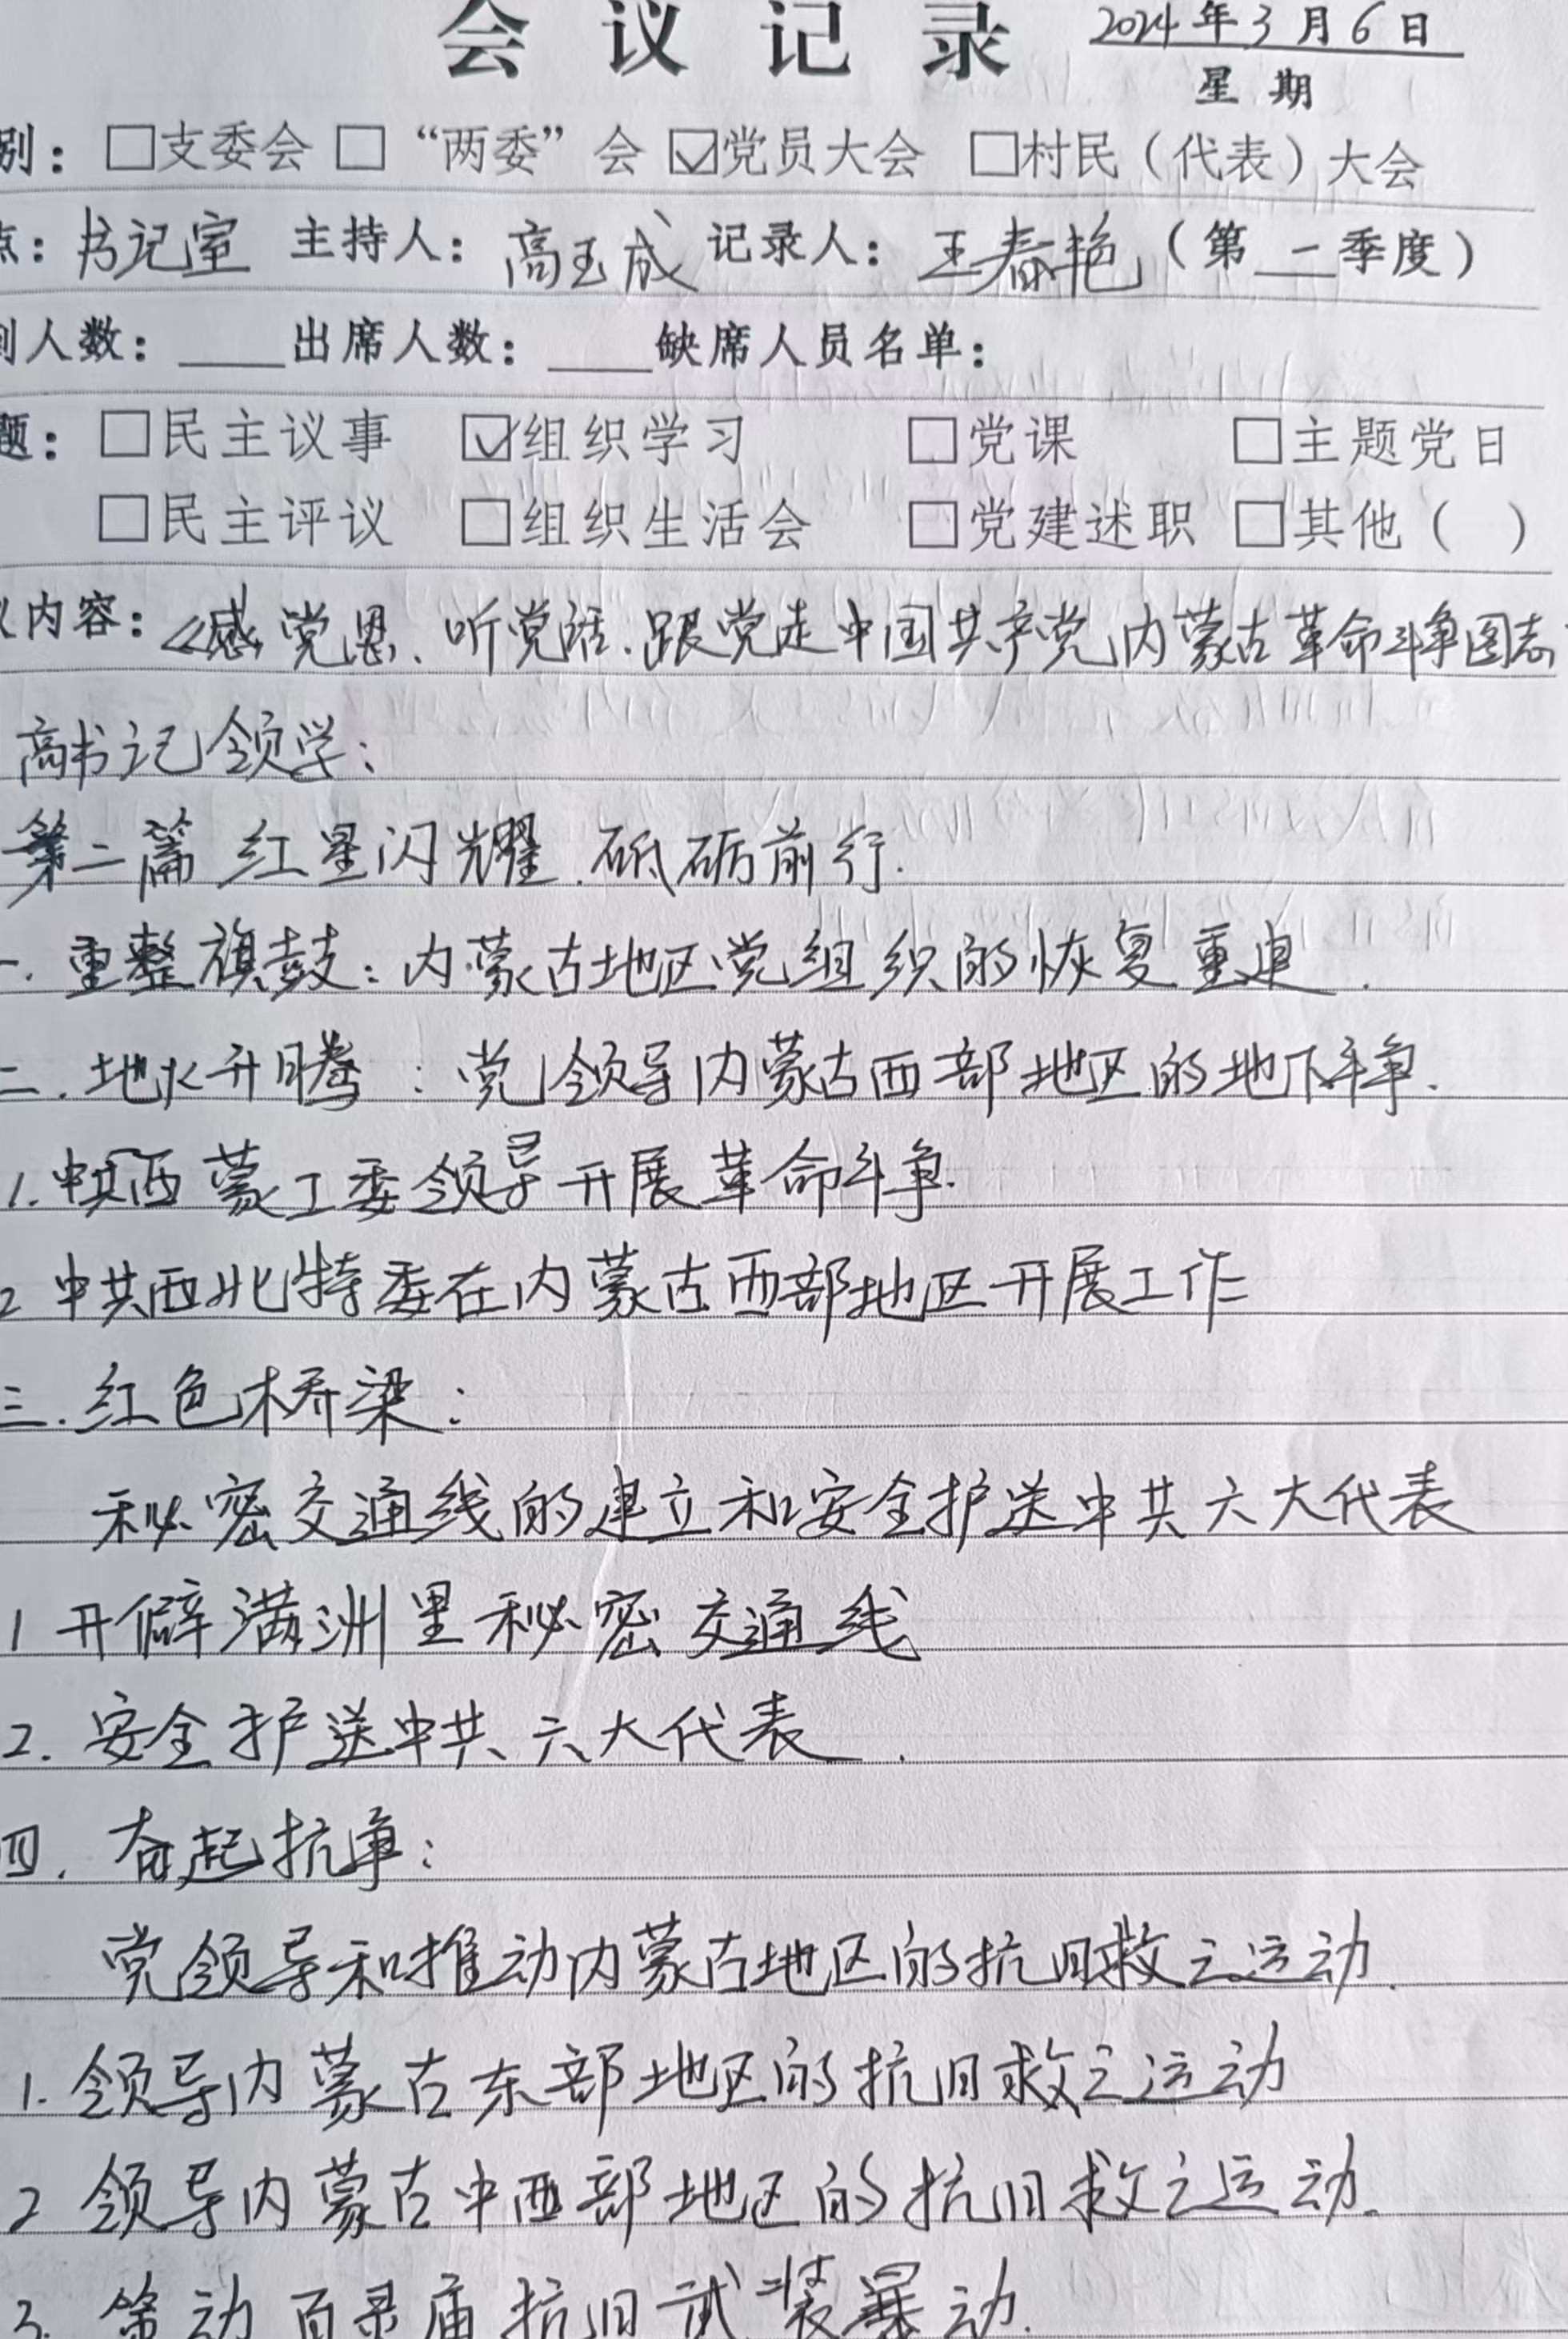 会议记录 2024年3月6日
星期
别：□支委会 □“两委”会 ☑党员大会 □村民（代表）大会
点：书记室 主持人：高玉成 记录人：王春艳（第一季度）
到人数：____出席人数：____缺席人员名单：
题：□民主议事 ☑组织学习 □党课 □主题党日
□民主评议 □组织生活会 □党建述职 □其他（ ）
议内容：《感党恩、听党话、跟党走中国共产党内蒙古革命斗争图志
高书记领学：
第二篇 红星闪耀、砥砺前行.
一. 重整旗鼓：内蒙古地区党组织的恢复重建.
二. 地火升腾：党领导内蒙古西部地区的地下斗争.
1. 中共西蒙工委领导开展革命斗争.
2 中共西北特委在内蒙古西部地区开展工作
三. 红色桥梁：
秘密交通线的建立和安全护送中共六大代表
1 开辟满洲里秘密交通线
2. 安全护送中共六大代表.
四. 奋起抗争：
党领导和推动内蒙古地区的抗日救亡运动.
1. 领导内蒙古东部地区的抗日救亡运动
2 领导内蒙古中西部地区的抗日救亡运动.
3. 策动百灵庙抗日武装暴动.